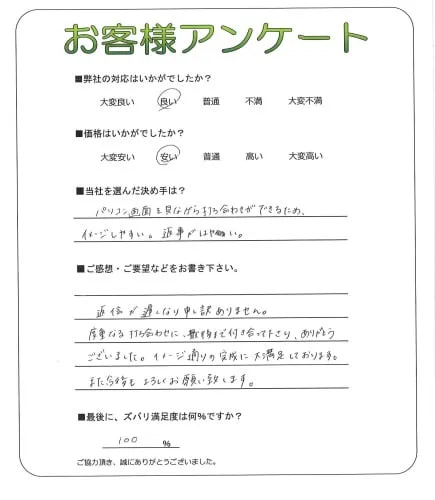 お客様アンケート
■弊社の対応はいかがでしたか？
大変良い 良い 普通 不満 大変不満
■価格はいかがでしたか？
大変安い 安い 普通 高い 大変高い
■当社を選んだ決め手は？
パソコン画面を見ながら打ち合わせができるため、
イメージしやすい。返事がはやい。
■ご感想・ご要望などをお書き下さい。
返信が遅くなり申し訳ありません。
度重なる打ち合わせに、最後まで付き合って下さり、ありがとう
ございました。イメージ通りの完成に大満足しております。
また今後もよろしくお願い致します。
■最後に、ズバリ満足度は何％ですか？
100 ％
ご協力頂き、誠にありがとうございました。